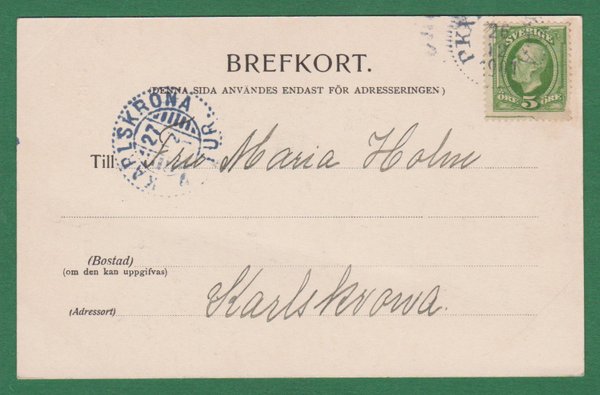 BREFKORT.
(DENNA SIDA ANVÄNDES ENDAST FÖR ADRESSERINGEN)
SVERIGE
ÖRE 5 ÖRE
PKX
KARLSKRONA
27
TUR
Till Fru Maria Holm
(Bostad)
(om den kan uppgifvas)
(Adressort) Karlskrona.